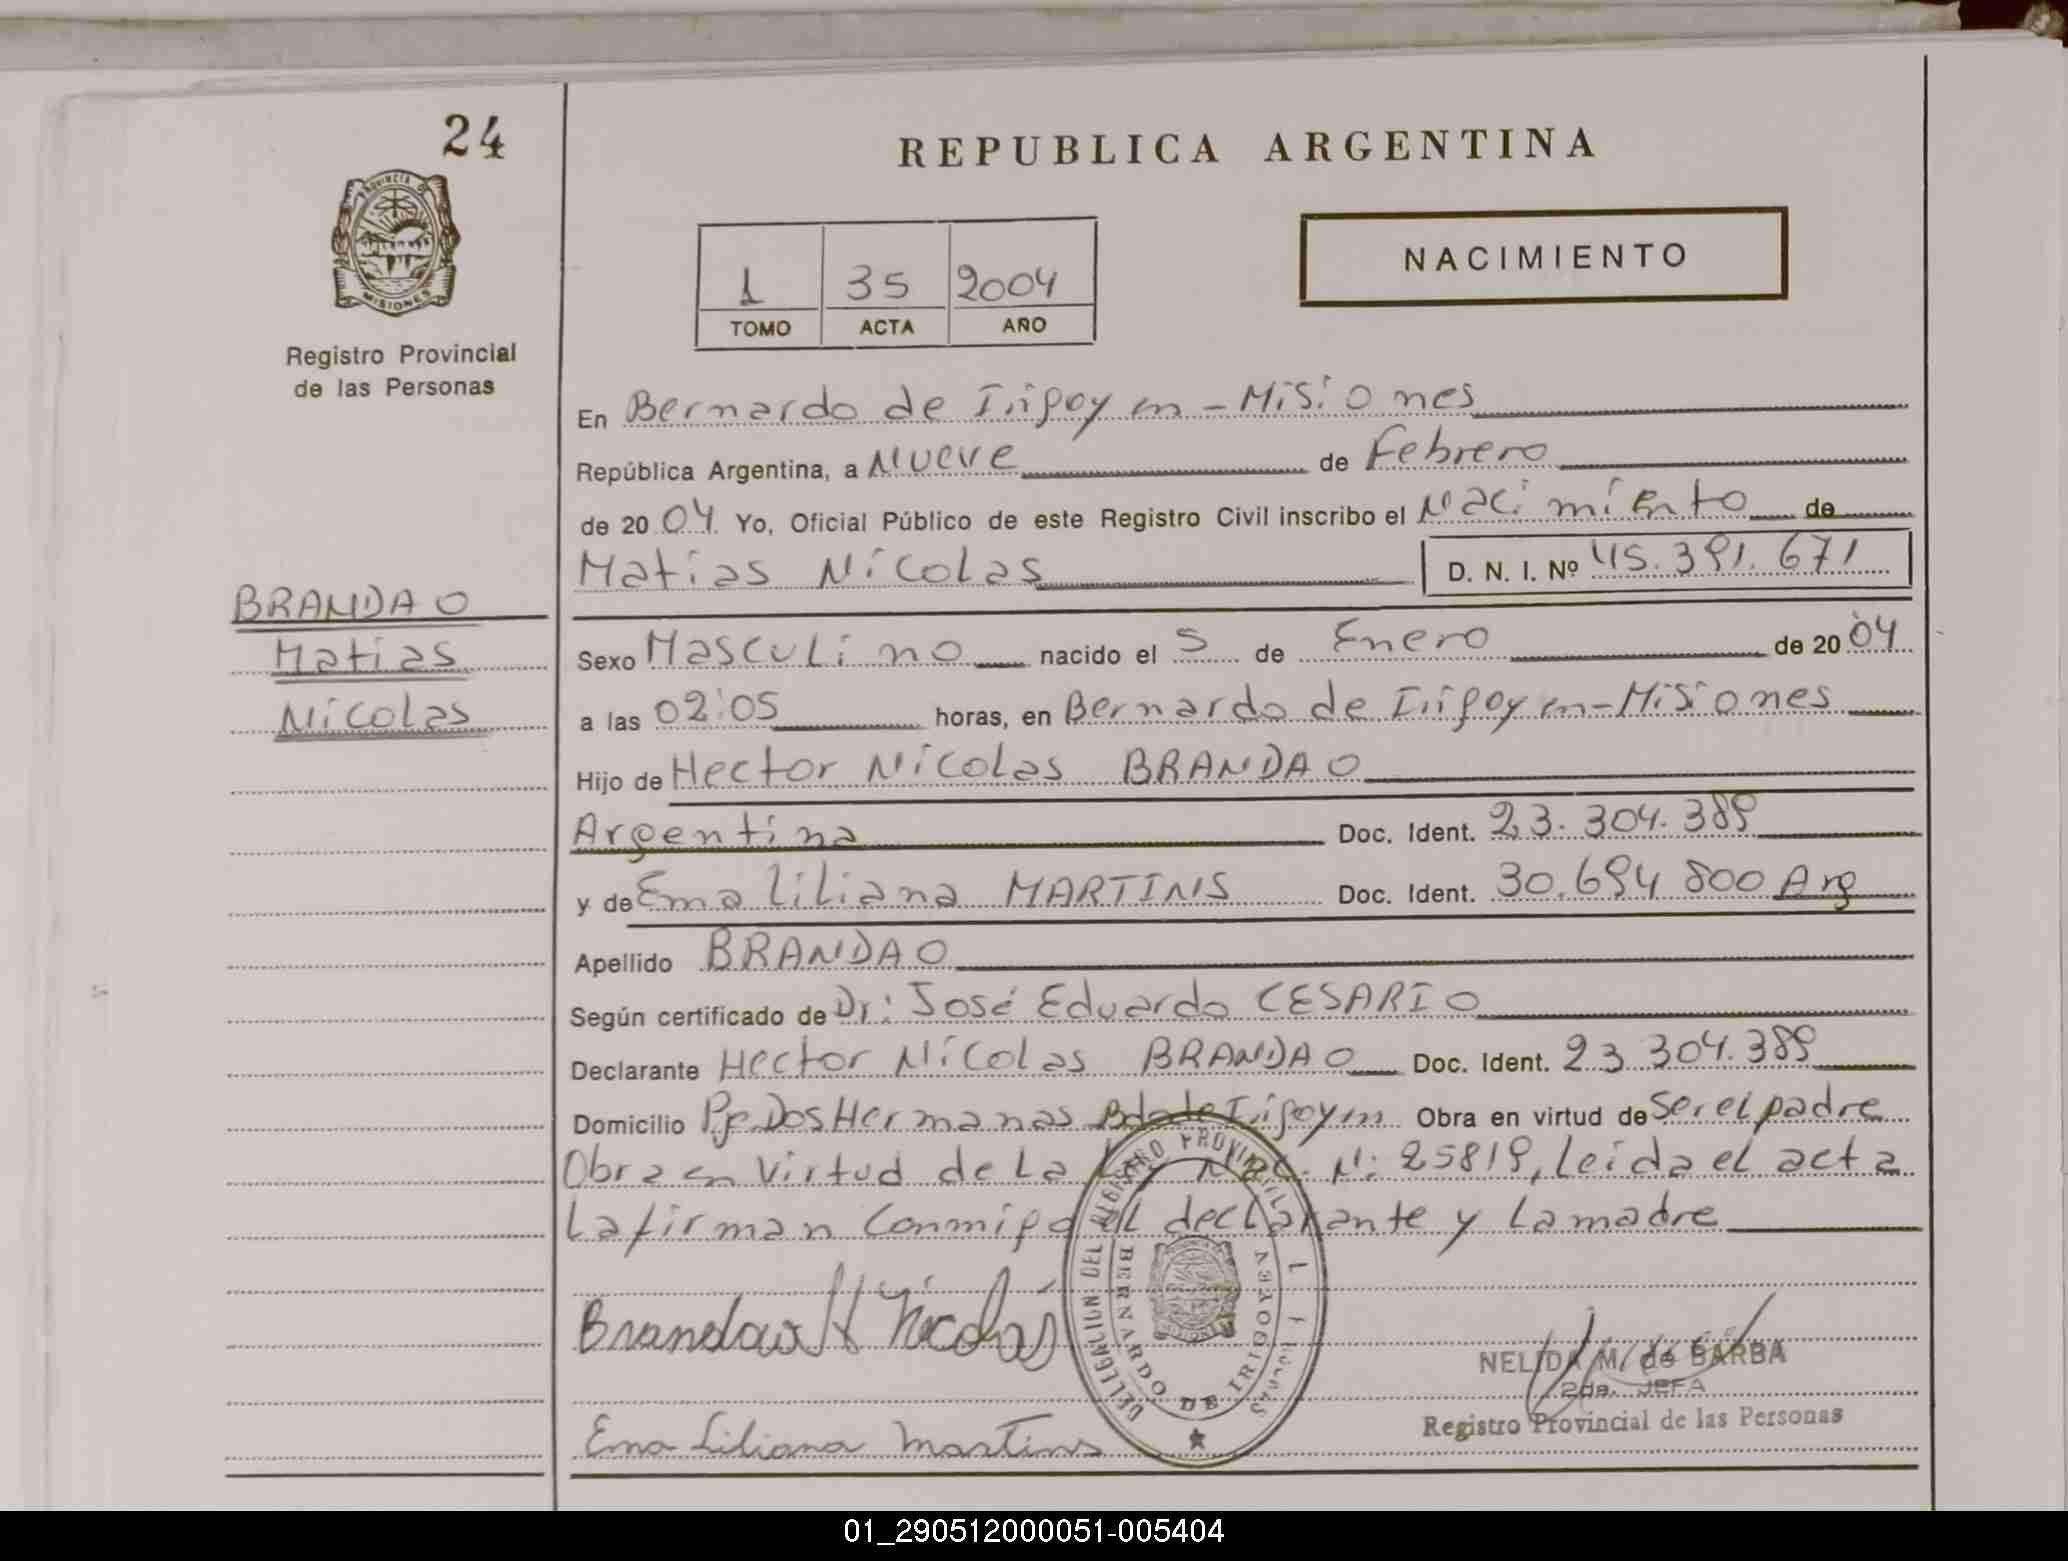 24
PROVINCIA DE
MISIONES
Registro Provincial
de las Personas
BRANDAO
Matias
Nicolas
REPUBLICA ARGENTINA
1 35 2004
TOMO ACTA AÑO
NACIMIENTO
En Bernardo de Irigoyen - Misiones
República Argentina, a Nueve de Febrero
de 20 04 Yo, Oficial Público de este Registro Civil inscribo el Nacimiento de
Matias Nicolas D. N. I. Nº 45.391.671
Sexo Masculino nacido el 5 de Enero de 20 04
a las 02:05 horas, en Bernardo de Irigoyen - Misiones
Hijo de Hector Nicolas BRANDAO
Argentina Doc. Ident. 23.304.389
y de Ema Liliana MARTINS Doc. Ident. 30.694.800 Arg
Apellido BRANDAO
Según certificado de Dr: José Eduardo CESARIO
Declarante Hector Nicolas BRANDAO Doc. Ident. 23.304.389
Domicilio Pje Dos Hermanas Bdo de Irigoyen Obra en virtud de Ser el padre
Obra en virtud de la Ley Nac. N: 25819, Leida el acta
La firman Conmigo el declarante y La madre
Brandao H Nicolás
Ema Liliana Martins
DELEGACION DEL REGISTRO PROVINCIAL
BERNARDO DE IRIGOYEN
NELIDA M. de BARBA
2da. JEFA
Registro Provincial de las Personas
01_290512000051-005404